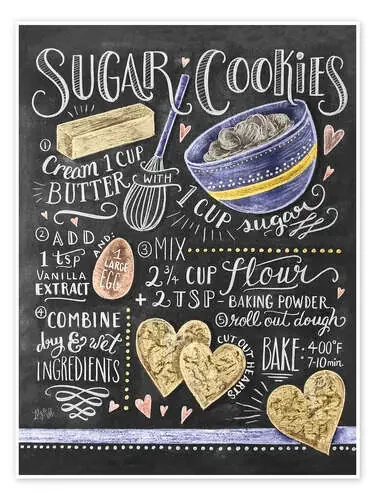 SUGAR COOKIES
① Cream 1 CUP
BUTTER WITH
1 CUP sugar
② ADD
1 tsp
VANILLA
EXTRACT
AND:
1
LARGE
EGG
③ MIX
2 3/4 CUP flour
+ 2 TSP BAKING POWDER
④ COMBINE
dry & wet
INGREDIENTS
⑤ roll out dough
CUT OUT HEARTS
BAKE: 400°F
7-10 min.
Lily & Val